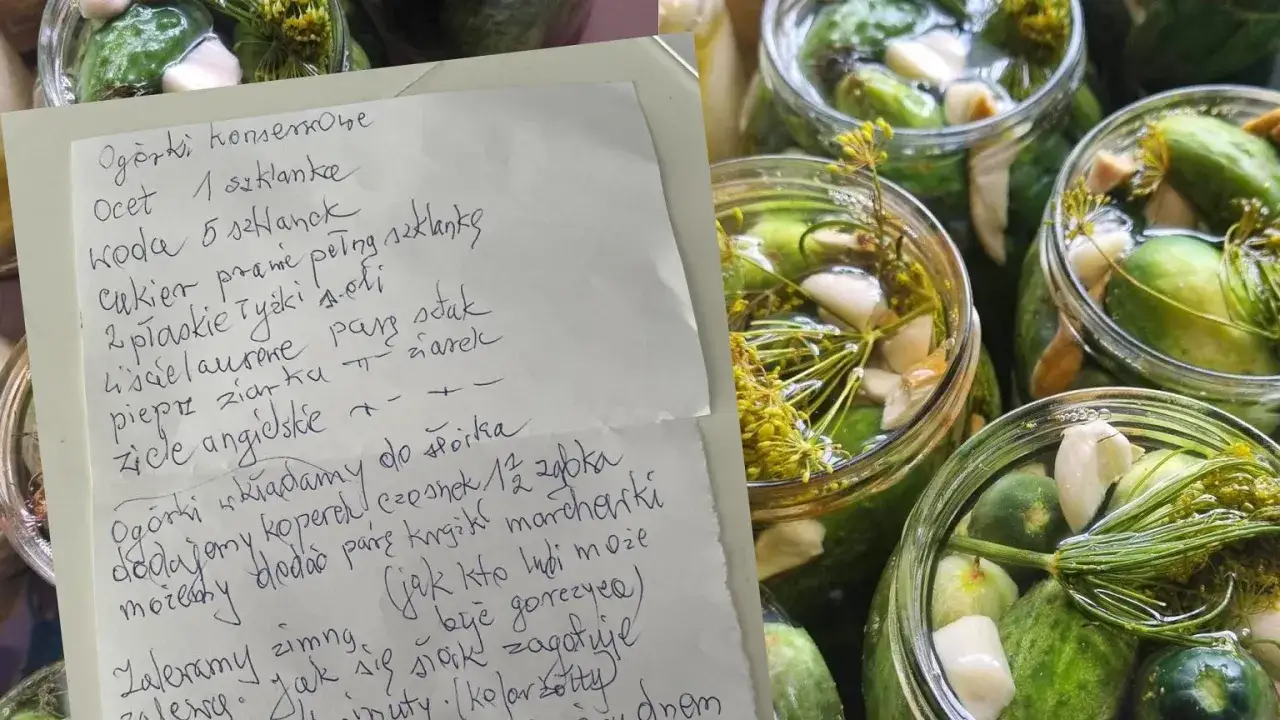 Ogórki konserwowe
Ocet 1 szklanka
woda 5 szklanek
cukier prawie pełną szklankę
2 płaskie łyżki soli
liście laurowe parę sztuk
pieprz ziarka -"- ziarek
ziele angielskie -"- -"-
Ogórki wkładamy do słoika
dodajemy koperek czosnek 1/2 ząbka
możemy dodać parę krążki marchewki
(jak kto lubi może
być gorczyca)
Zalewamy zimną
zalewą. jak się słoik zagotuje
minuty. (kolor żółty)
dnem